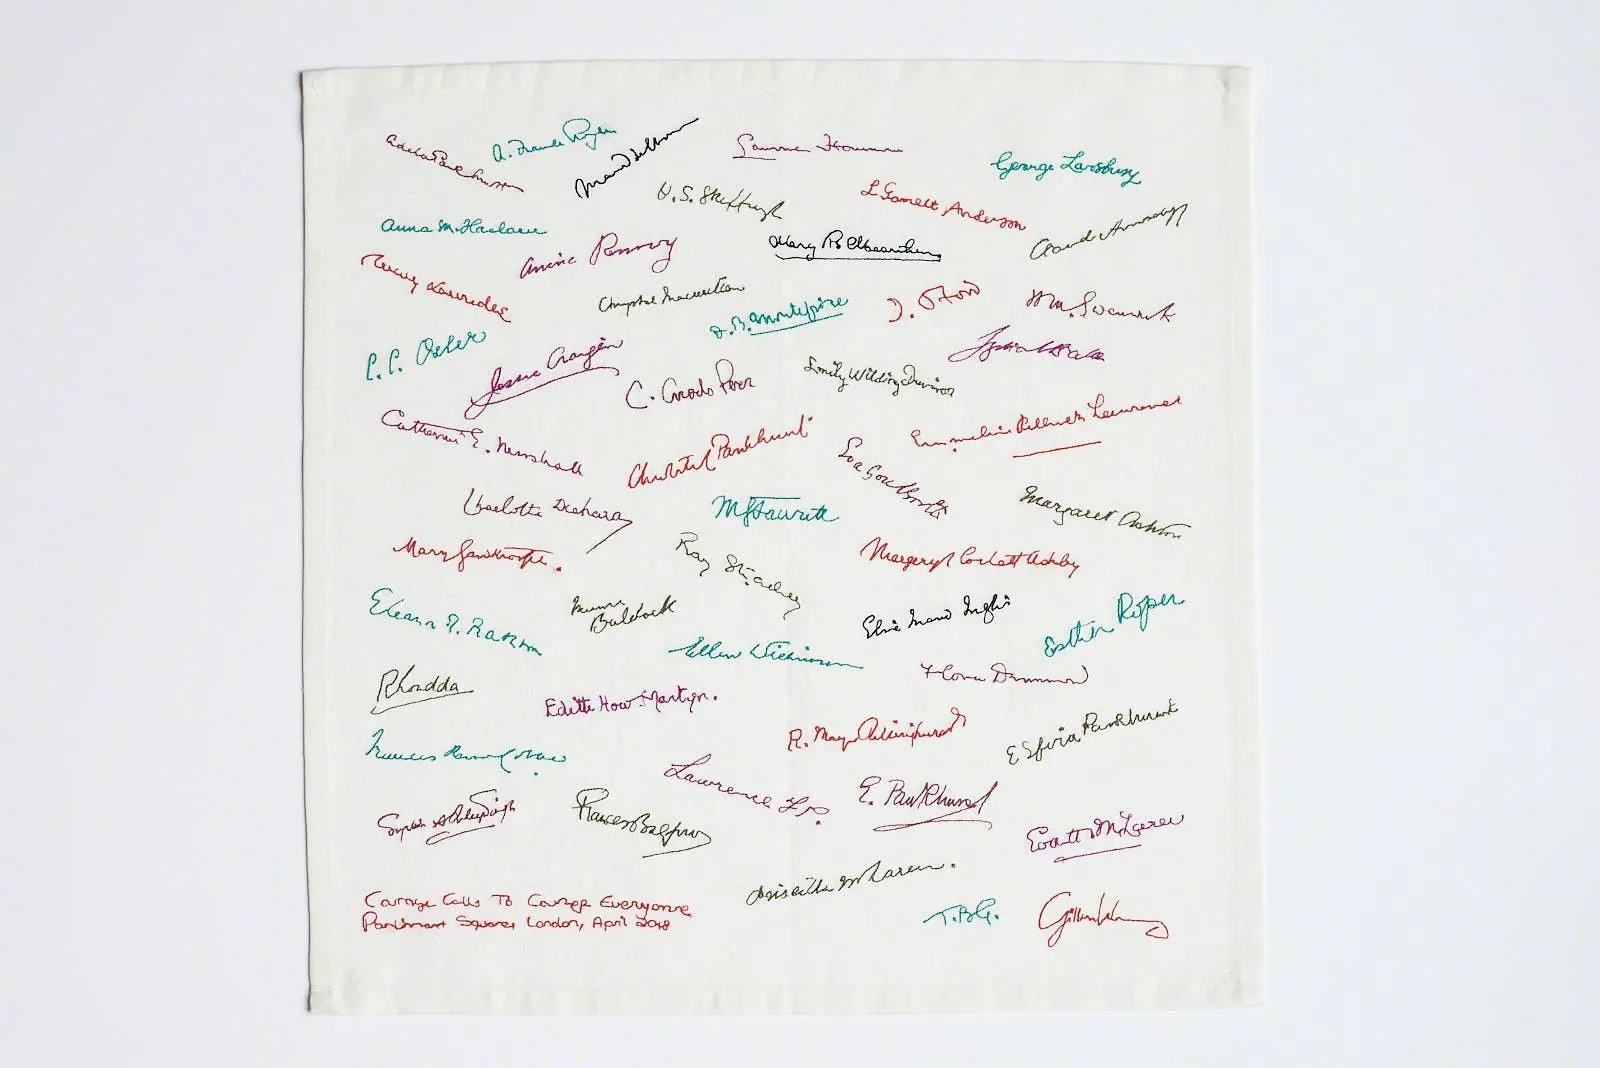 Adela Pankhurst
A. Maude Royden
Laurence Housman
George Lansbury
H. S. Skeffington
L Garrett Anderson
Anna M. Haslam
Annie Kenney
Mary R Macarthur
Chrystal Macmillan
D. B. Montefiore
I. O. Ford
Wm.
C. C. Osler
Jessie Craigen
Emily Wilding Davison
Catherine E. Marshall
Christabel Pankhurst
Eva Gore Booth
Emmeline Pethick Lawrence
Charlotte Despard
M G Fawcett
Margaret Ashton
Mary Gawthorpe.
Ray Strachey
Margery Corbett Ashby
Eleanor F. Rathbone
Minnie
Baldock
Elsie Maud Inglis
Esther Roper
Ellen Wilkinson
Rhondda
Flora Drummond
Edith How Martyn.
R. May Billinghurst
E Sylvia Pankhurst
Lawrence
E. Pankhurst
Frances Balfour
Eva McLaren
Priscilla McLaren.
Courage Calls To Courage Everywhere
Parliament Square, London, April 2018
T.B.G.
Gillian Wearing